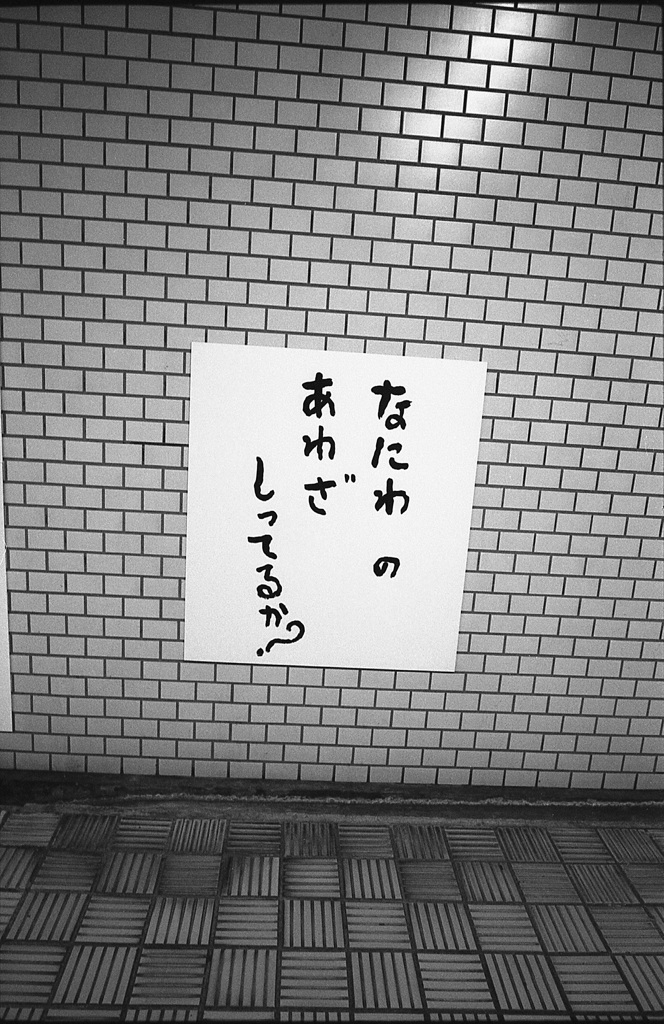 なにわ の
あわざ
しってるか?